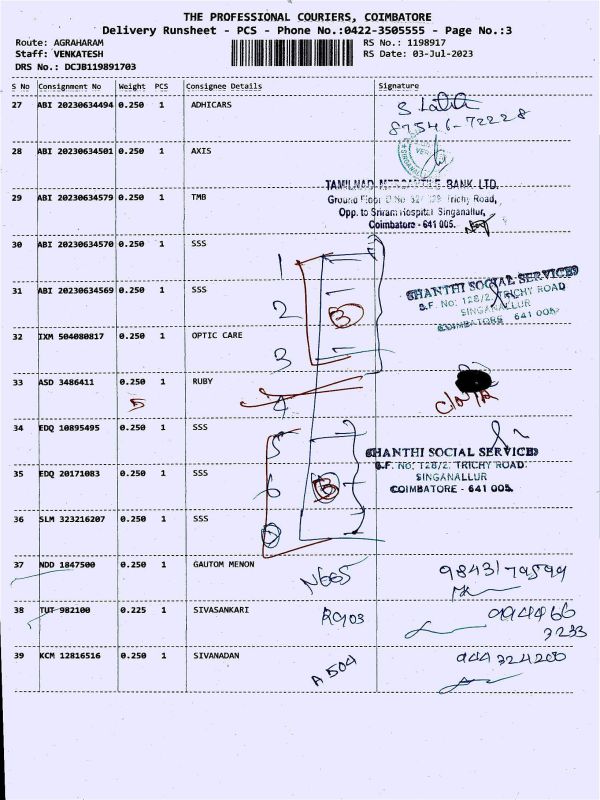 THE PROFESSIONAL COURIERS, COIMBATORE
Delivery Runsheet - PCS - Phone No.:0422-3505555 - Page No.:3
Route: AGRAHARAM
RS No.: 1198917
Staff: VENKATESH
RS Date: 03-Jul-2023
DRS No.: DCJB119891703
S No Consignment No Weight PCS Consignee Details Signature
27 ABI 20230634494 0.250 1 ADHICARS
87546-72228
28 ABI 20230634501 0.250 1 AXIS
29 ABI 20230634579 0.250 1 TMB
TAMILNAD MERCANTILE BANK LTD.
Trichy Road,
Opp. to Sriram Hospital Singanallur,
Coimbatore - 641 005.
30 ABI 20230634570 0.250 1 SSS
1
31 ABI 20230634569 0.250 1 SSS
2 3
SHANTHI SOCIAL SERVICES
S.F. No: 128/2, TRICHY ROAD
SINGANALLUR
COIMBATORE 641 005
32 IXM 504080817 0.250 1 OPTIC CARE
3
33 ASD 3486411 0.250 1 RUBY
5 4
34 EDQ 10895495 0.250 1 SSS
5
SHANTHI SOCIAL SERVICES
S.F. No: 128/2, TRICHY ROAD
SINGANALLUR
COIMBATORE - 641 005.
35 EDQ 20171083 0.250 1 SSS
6
36 SLM 323216207 0.250 1 SSS
37 NDD 1847500 0.250 1 GAUTOM MENON
N605
38 TUT 982100 0.225 1 SIVASANKARI
R9103
39 KCM 12816516 0.250 1 SIVANADAN
A 504
944 324200